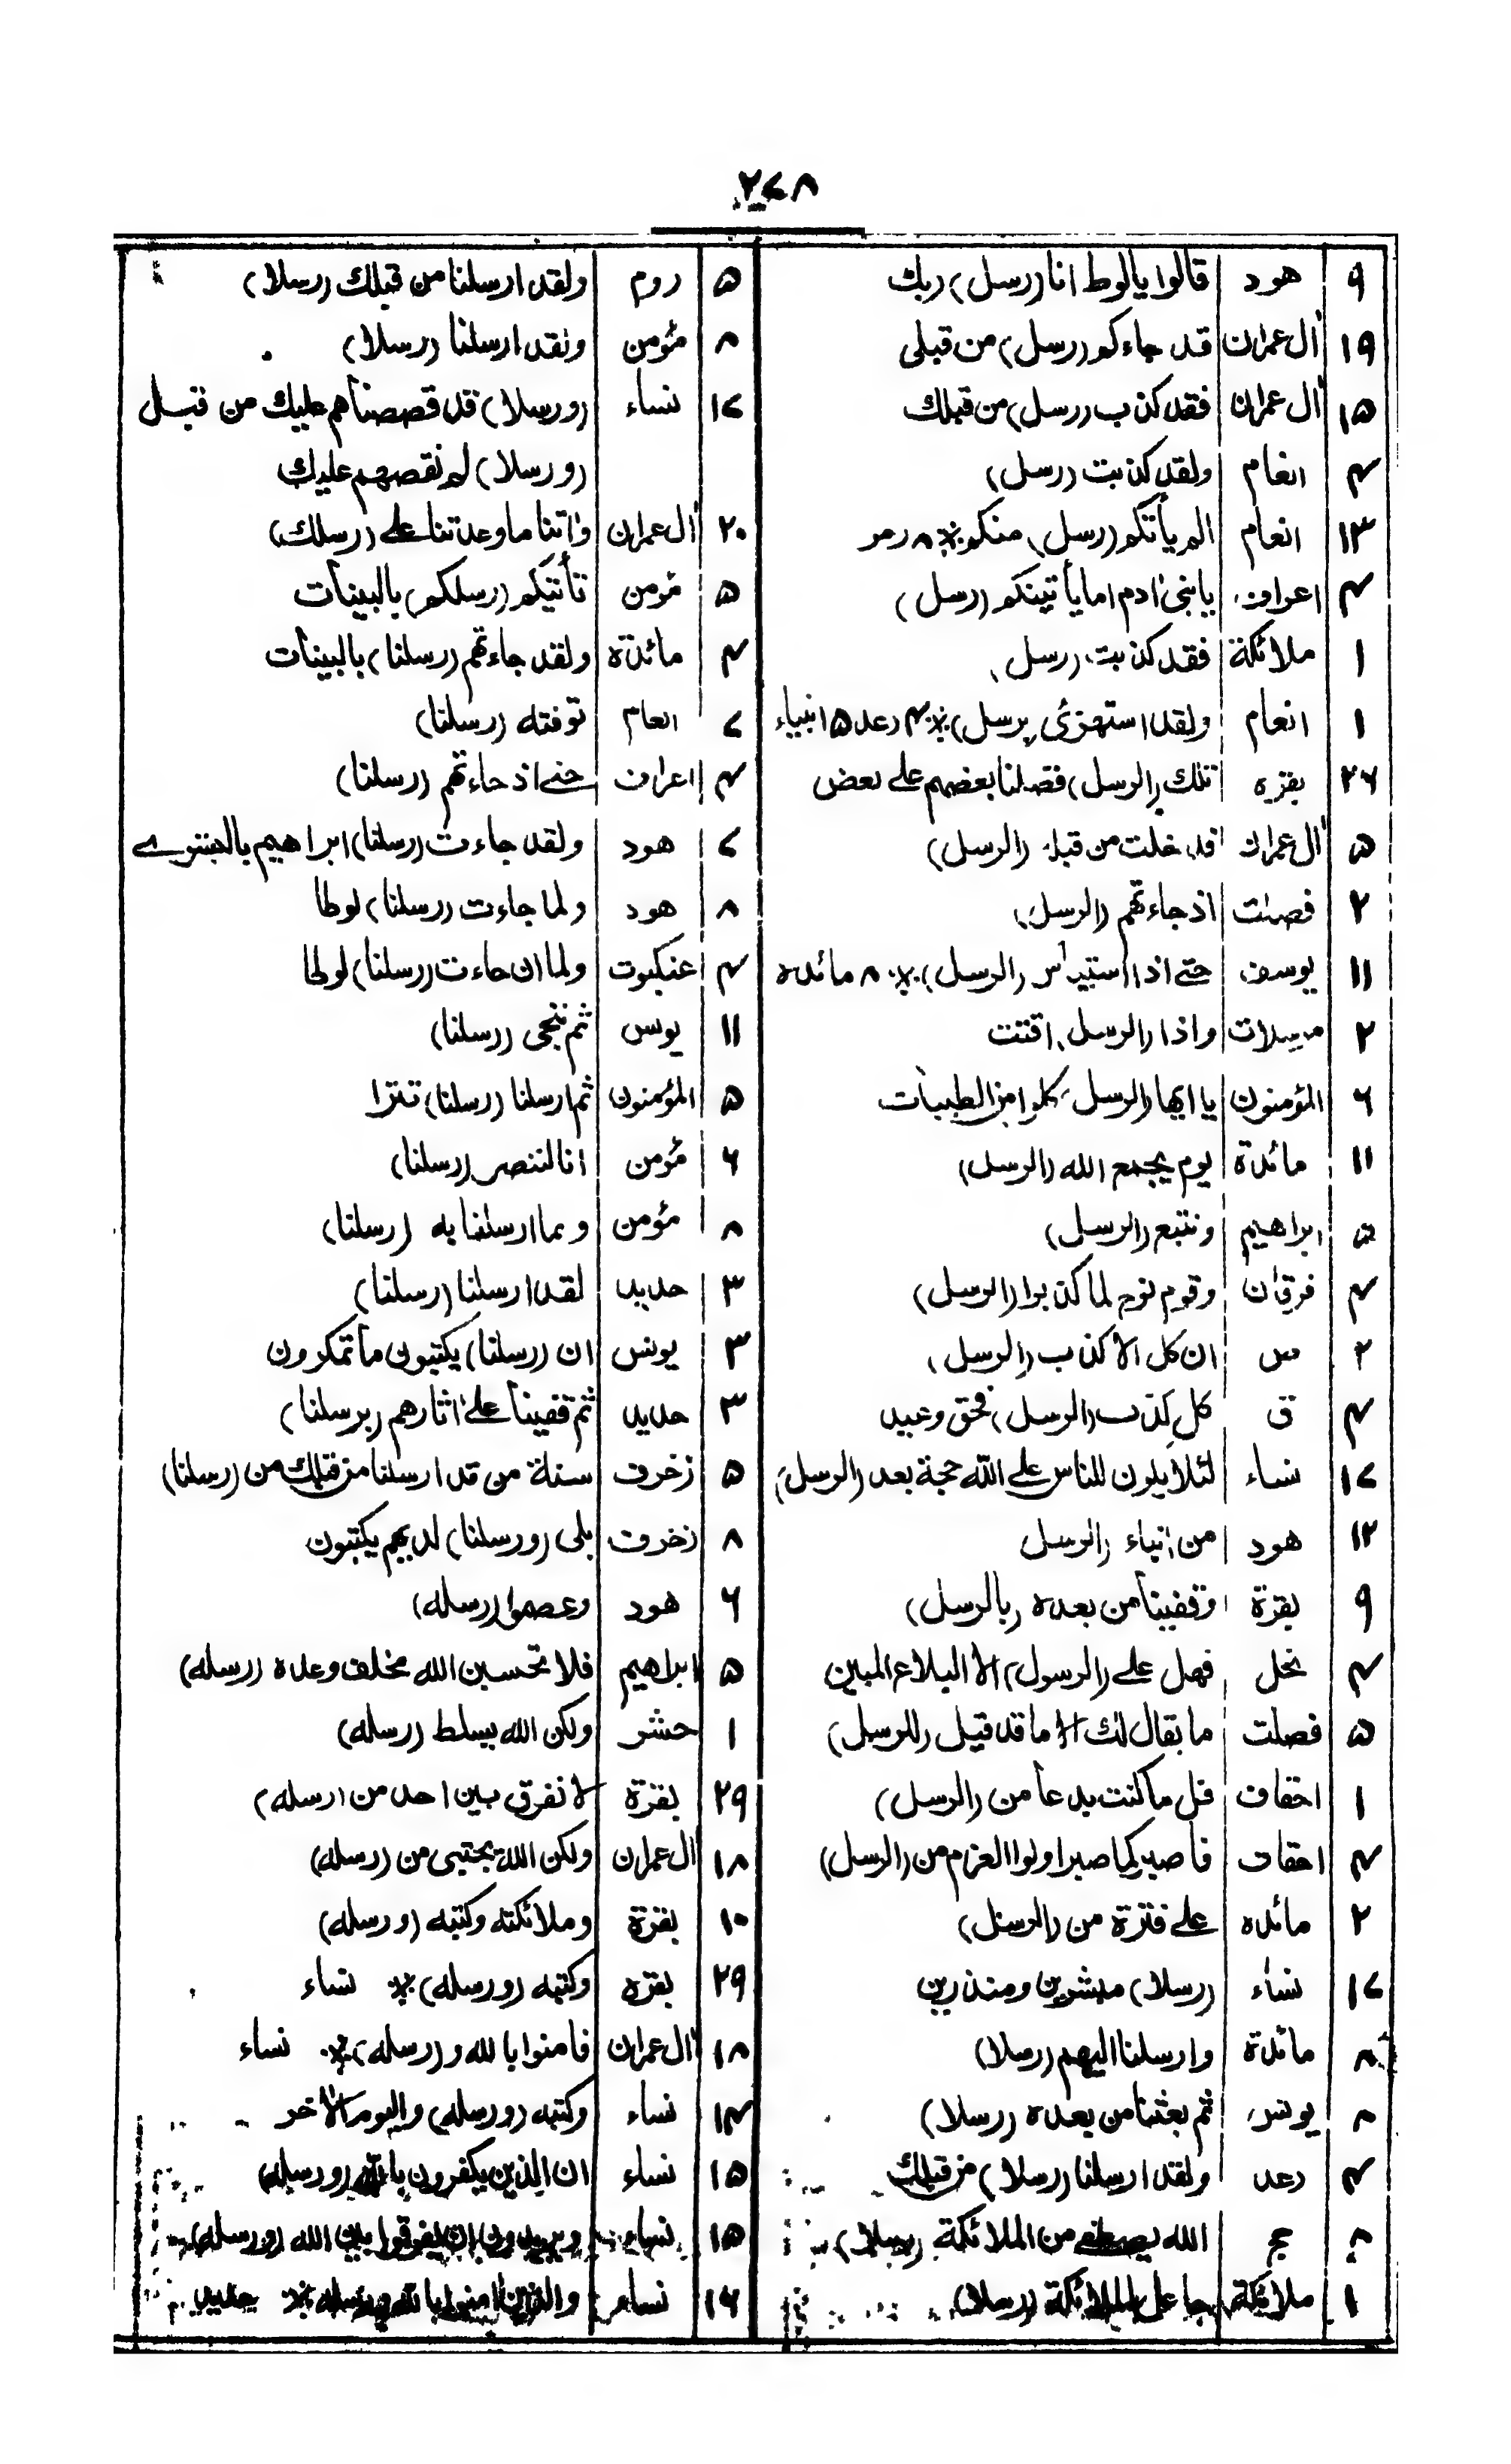 ۲۷۸
۹ هود قالوا يالوط انا (رسل) ربك
۱۹ اٰل عمران قد جاءكم (رسل) من قبلى
۱۵ اٰل عمران فقد كذب (رسل) من قبلك
۴ انعام ولقد كذبت (رسل)
۱۳ انعام الم يأتكم (رسل) منكم ※ ۸ زمر
۴ اعراف يابنى اٰدم اما يأتينكم (رسل)
۱ ملائكة فقد كذبت (رسل)
۱ انعام ولقد استهزئ (برسل) ※ ۴ رعد ۵ انبياء
۲۶ بقره تلك (الرسل) فضلنا بعضهم على بعض
۵ اٰل عمران قد خلت من قبله (الرسل)
۲ فصلت اذ جاءتهم (الرسل)
۱۱ يوسف حتے اذا استيئس (الرسل) ※ ۸ مائده
۲ مرسلات واذا (الرسل) اقتت
۶ المؤمنون يا ايها (الرسل) كلوا من الطيبات
۱۱ مائدة يوم يجمع الله (الرسل)
۵ ابراهيم ونتبع (الرسل)
۴ فرقان وقوم نوح لما كذبوا (الرسل)
۲ ص ان كل الا كذب (الرسل)
۴ ق كل كذب (الرسل) فحق وعيد
۱۷ نساء لئلا يكون للناس على الله حجة بعد (الرسل)
۱۲ هود من انباء (الرسل
۹ بقرة وقفينا من بعده (بالرسل)
۴ نحل فهل على (الرسول) الا البلاغ المبين
۵ فصلت ما يقال لك الا ما قد قيل (للرسل)
۱ احقاف قل ما كنت بدعا من (الرسل)
۴ احقاف فاصبر كما صبر اولوا العزم من (الرسل)
۲ مائده على فترة من (الرسل)
۱۷ نساء (رسلا) مبشرين ومنذرين
۸ مائدة وارسلنا اليهم (رسلا)
۸ يونس ثم بعثنا من بعده (رسلا)
۴ رعد ولقد ارسلنا (رسلا) من قبلك
حج الله يصطفى من الملائكة (رسلا)
۱ ملائكة جاعل الملائكة (رسلا)
۵ روم ولقد ارسلنا من قبلك (رسلا)
۸ مؤمن ولقد ارسلنا (رسلا)
۱۷ نساء (ورسلا) قد قصصناهم عليك من قبل
(ورسلا) لم نقصصهم عليك
۲۰ اٰل عمران واٰتنا ما وعدتنا على (رسلك)
۵ مؤمن تأتيكم (رسلكم) بالبينات
۴ مائدة ولقد جاءتهم (رسلنا) بالبينات
۷ انعام توفته (رسلنا)
۴ اعراف حتے اذ جاءتهم (رسلنا)
۷ هود ولقد جاءت (رسلنا) ابراهيم بالبشرے
۸ هود ولما جاءت (رسلنا) لوطا
۴ عنكبوت ولما ان جاءت (رسلنا) لوطا
۱۱ يونس ثم ننجى (رسلنا)
۵ المؤمنون ثم ارسلنا (رسلنا) تترا
۶ مؤمن انا لننصر (رسلنا)
۸ مؤمن وبما ارسلنا به (رسلنا)
۳ حديد لقد ارسلنا (رسلنا)
۳ يونس ان (رسلنا) يكتبون ما تمكرون
۳ حديد ثم قفينا على اٰثارهم (برسلنا)
۵ زخرف سنة من قد ارسلنا من قبلك من (رسلنا)
۸ زخرف بلى (ورسلنا) لديهم يكتبون
۶ هود وعصوا (رسله)
۵ ابراهيم فلا تحسبن الله مخلف وعده (رسله)
۱ حشر ولكن الله يسلط (رسله)
۲۹ بقرة لا نفرق بين احد من (رسله)
۱۸ اٰل عمران ولكن الله يجتبى من (رسله)
۱۰ بقرة وملائكته وكتبه (ورسله)
۲۹ بقره وكتبه (ورسله) ※ نساء
۱۸ اٰل عمران فاٰمنوا بالله و (رسله) ※ نساء
۱۴ نساء وكتبه (ورسله) واليوم الاٰخر
۱۵ نساء ان الذين يكفرون بالله (ورسله)
۱۵ نساء ويريدون ان يفرقوا بين الله (ورسله)
۱۶ نساء والذين اٰمنوا بالله ورسله ※ حديد